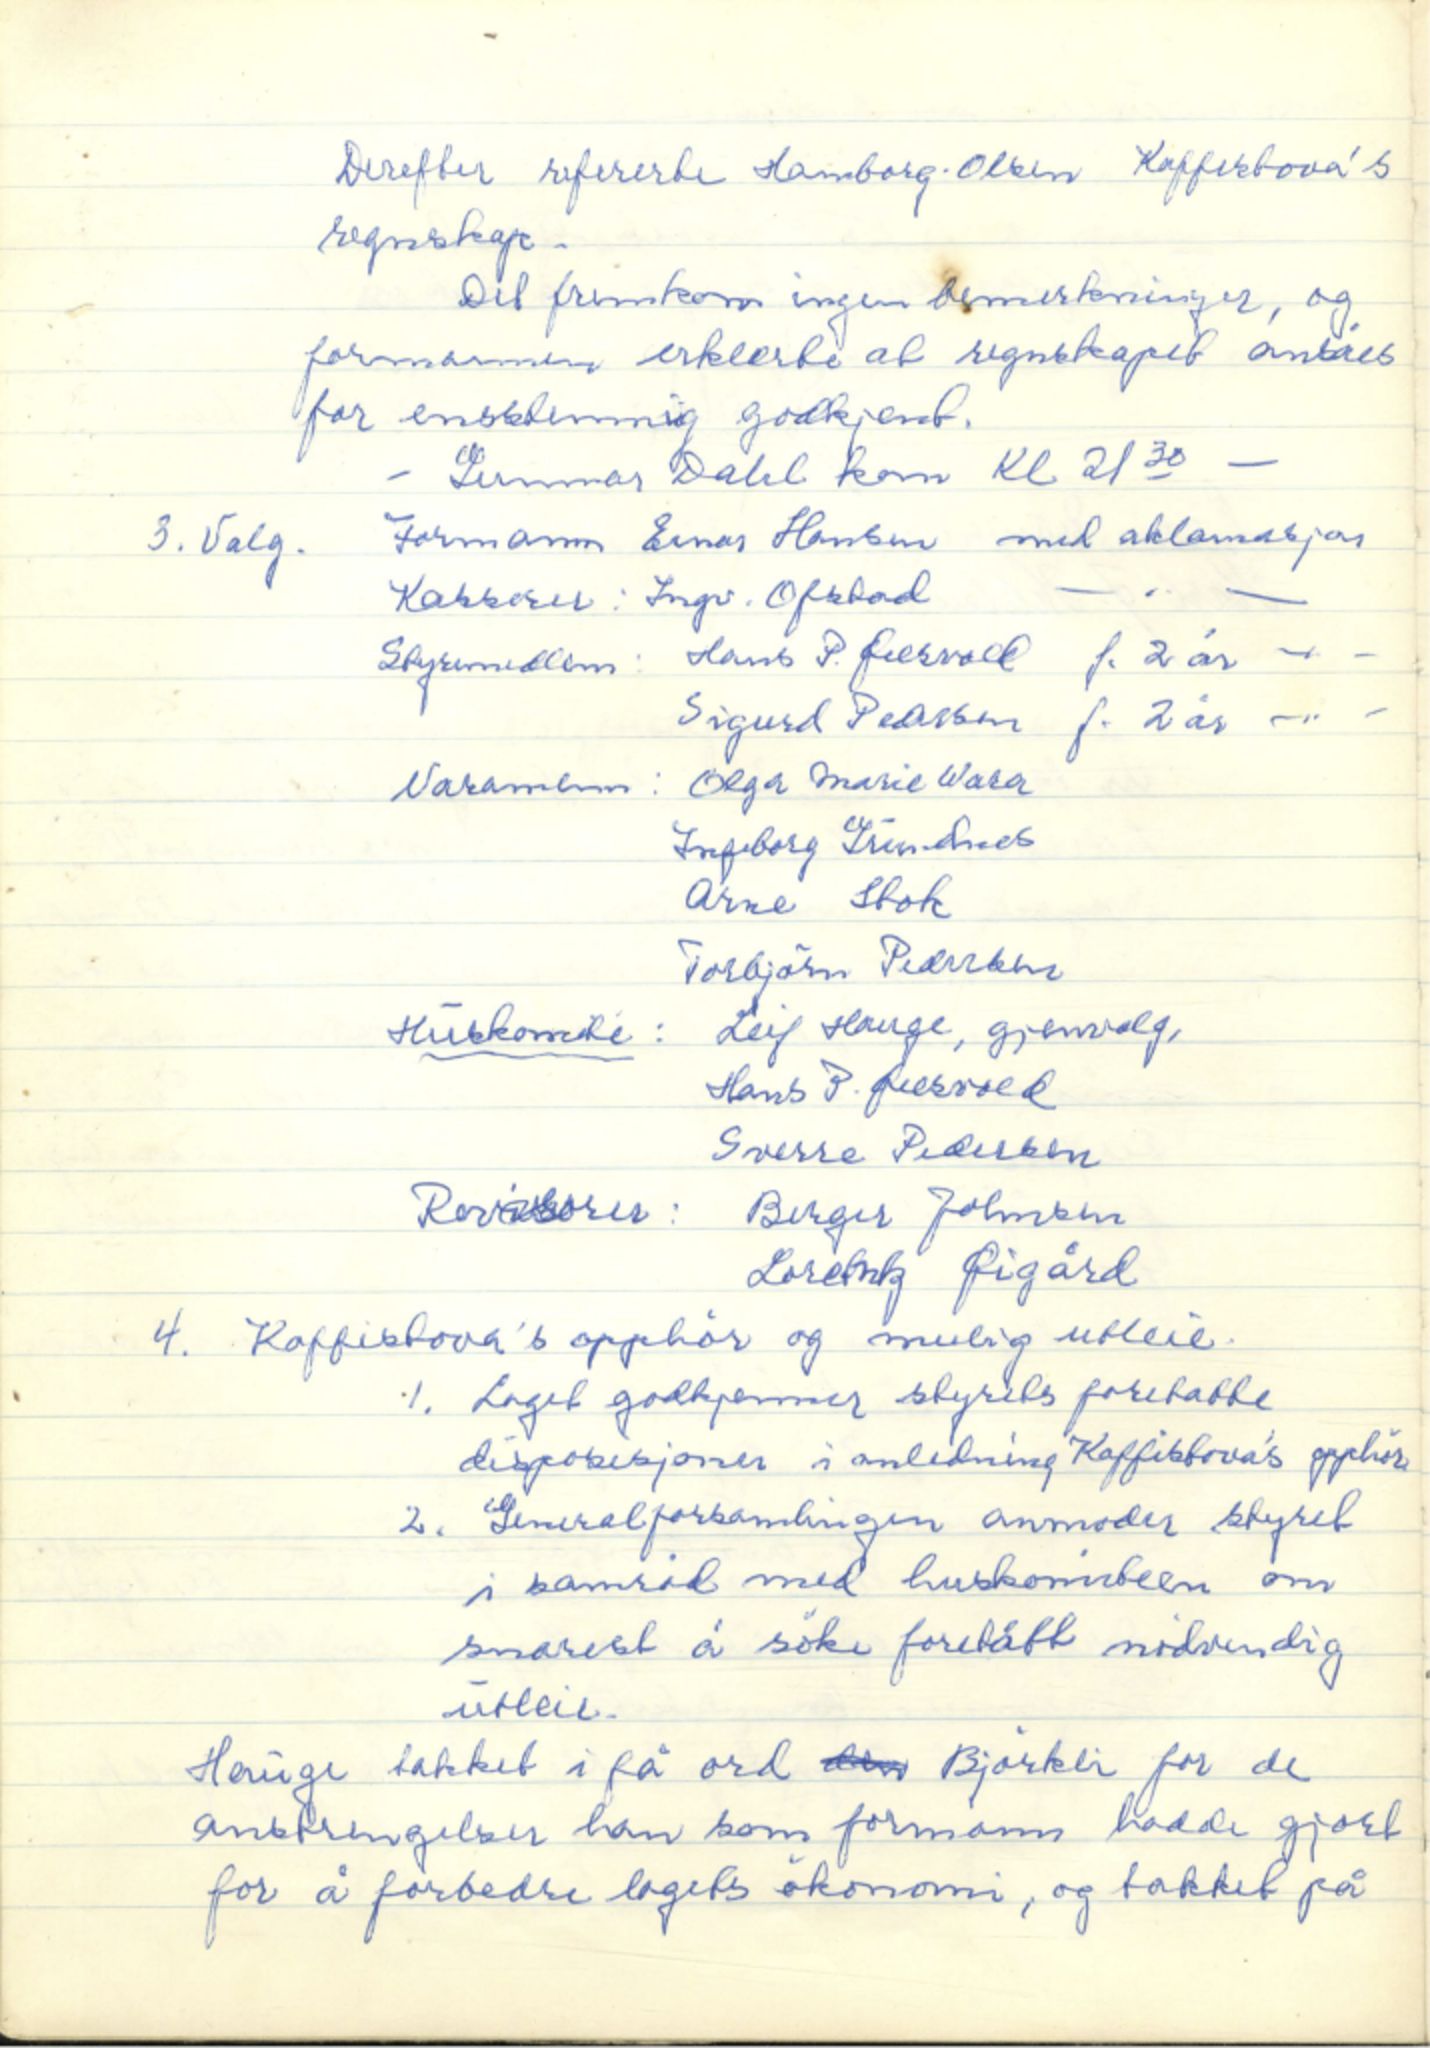 Derefter refererte Hamborg-Olsen Kaffistova's
regnskap.
Det fremkom ingen bemerkninger, og
formannen erklærte at regnskapet ansåes
for enstemmig godkjent.
- Gunnar Dahl kom Kl 21 30 -
3. Valg. Formann Einar Hansen med aklamasjon
Kasserer: Ingv. Ofstad - " -
Styremedlem: Hans P. f. 2 år - " -
Sigurd Pedersen f. 2 år - " -
Varamenn: Olga Marie Wara
Ingeborg Grundnes
Arne Stok
Torbjörn Pedersen
Huskomite: Leif Hauge, gjenvalg,
Hans P.
Sverre Pedersen
Revisorer: Berger Johnsen
Lorentz Øigård
4. Kaffistova's opphör og mulig utleie.
1. Laget godkjenner styrets foretatte
disposisjoner i anledning Kaffistova's opphör
2. Generalforsamlingen anmoder styret
i samråd med huskomiteen om
snarest å söke foretatt nödvendig
utleie.
Hauge takket i få ord Björkli for de
anstrengelser han som formann hadde gjort
for å forbedre lagets ökonomi, og takket på